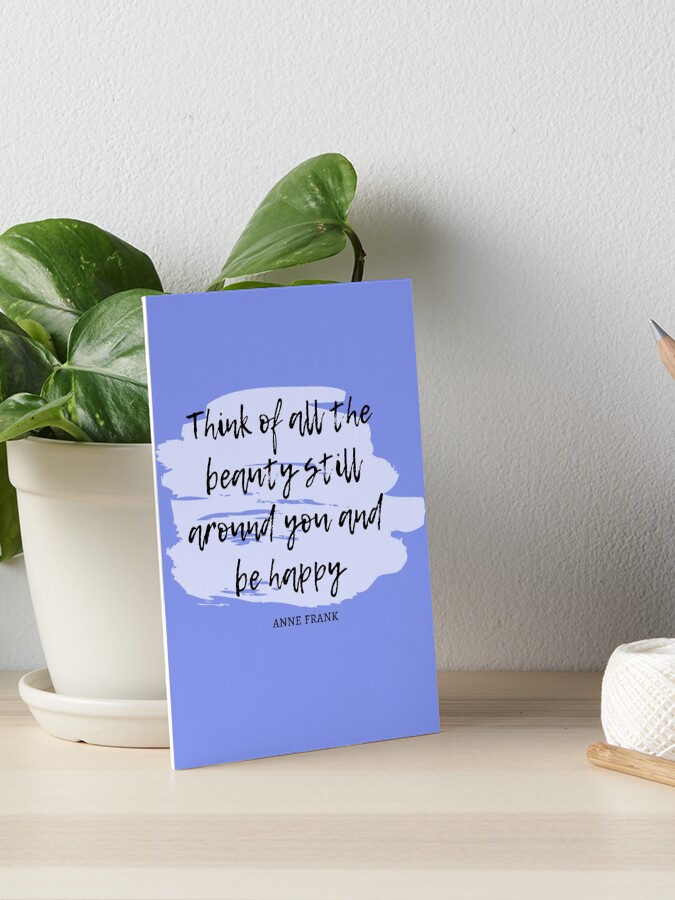 Think of all the
beauty still
around you and
be happy
ANNE FRANK